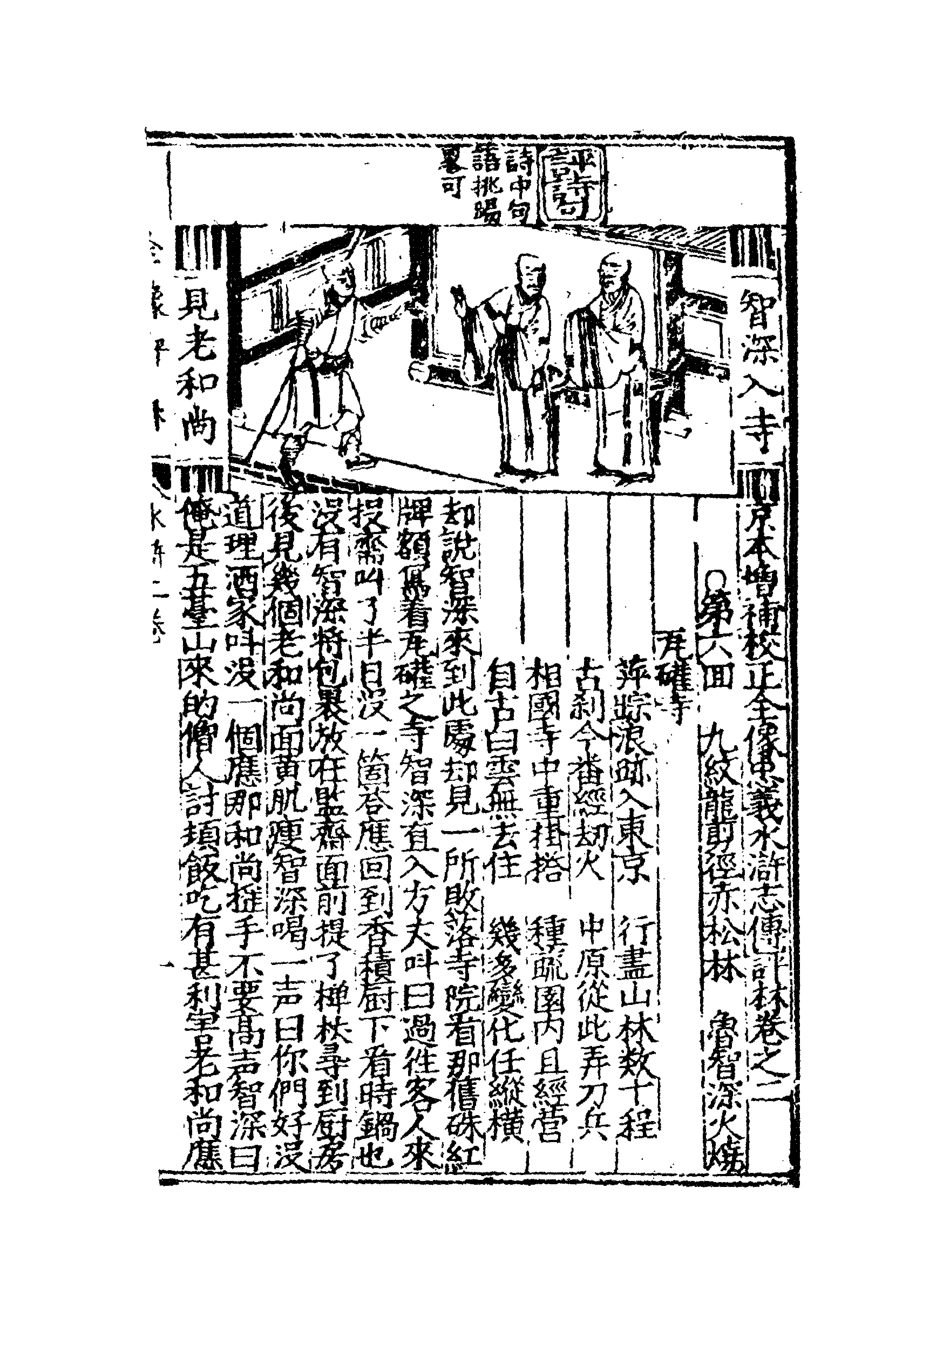 評詩句
詩中句
語挑踢
畧可
智深入寺
見老和尚
京本增補校正全像忠義水滸志傳評林卷之二
○第六回 九紋龍剪徑赤松林 魯智深火燒
瓦礶寺
萍踪浪跡入東京 行盡山林数十程
古刹今番經劫火 中原從此弄刀兵
相國寺中重掛搭 種蔬園内且經営
自古白雲無去住 幾多變化任縱横
却說智深來到此處却見一所敗落寺院看那舊硃紅
牌額寫着瓦礶之寺智深直入方丈叫曰過徃客人來
投齋叫了半日没一箇荅應回到香積厨下看時鍋也
没有智深將包裹放在監齋面前提了禅杖尋到厨房
後見幾個老和尚面黄肌瘦智深喝一声曰你們好没
道理洒家叫没一個應那和尚摇手不要高声智深曰
俺是五臺山來的僧人討頓飯吃有甚利害老和尚應